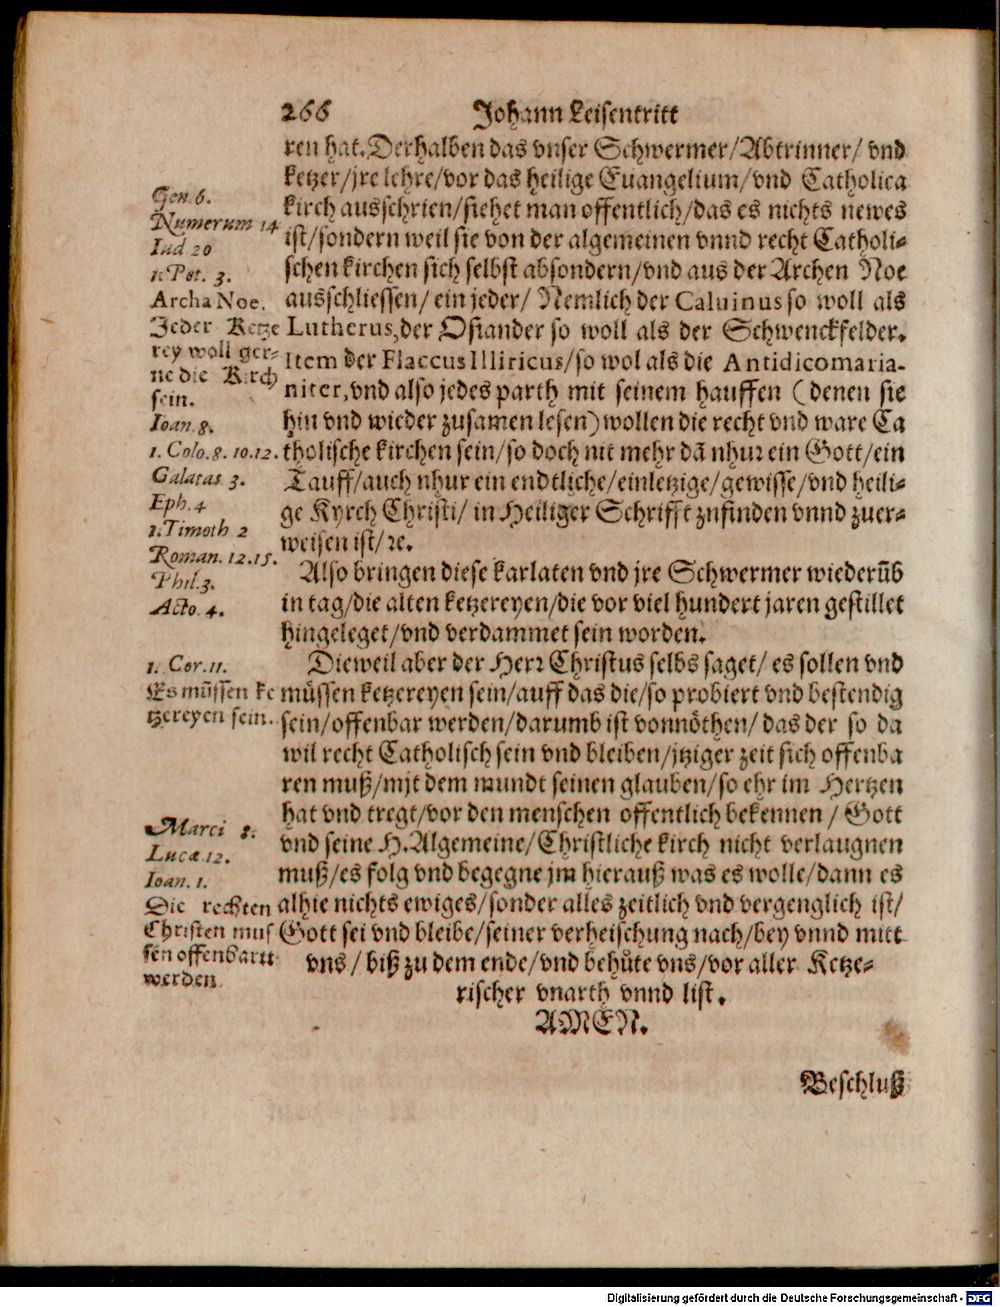 266 Johann Leisentritt
ren hat. Derhalben das vnser Schwermer/Abtrinner/ vnd
ketzer/jre lehre/vor das heilige Euangelium/vnd Catholica
kirch ausschrien/siehet man offentlich/das es nichts newes
ist/sondern weil sie von der algemeinen vnnd recht Catholi-
schen kirchen sich selbst absondern/vnd aus der Archen Noe
ausschliessen/ ein jeder/ Nemlich der Caluinus so woll als
Lutherus, der Osiander so woll als der Schwenckfelder.
Item der Flaccus Illiricus/so wol als die Antidicomaria-
niter, vnd also jedes parth mit seinem hauffen (denen sie
hin vnd wieder zusamen lesen) wollen die recht vnd ware Ca
tholische kirchen sein/so doch nit mehr dã nhur ein Gott/ein
Tauff/auch nhur ein endtliche/einletzige/gewisse/vnd heili-
ge Kyrch Christi/ in Heiliger Schrifft zufinden vnnd zuer-
weisen ist/ꝛc.
Also bringen diese karlaten vnd jre Schwermer wiederũb
in tag/die alten ketzereyen/die vor viel hundert jaren gestillet
hingeleget/vnd verdammet sein worden.
Dieweil aber der Herr Christus selbs saget/ es sollen vnd
müssen ketzereyen sein/auff das die/so probiert vnd bestendig
sein/offenbar werden/darumb ist vonnöthen/ das der so da
wil recht Catholisch sein vnd bleiben/jtziger zeit sich offenba
ren muß/mit dem mundt seinen glauben/so ehr im Hertzen
hat vnd tregt/vor den menschen offentlich bekennen / Gott
vnd seine H. Algemeine/Christliche kirch nicht verlaugnen
muß/es folg vnd begegne jm hierauß was es wolle/dann es
alhie nichts ewiges/sonder alles zeitlich vnd vergenglich ist/
Gott sei vnd bleibe/seiner verheischung nach/bey vnnd mitt
vns / biß zu dem ende/vnd behüte vns/vor aller Ketze-
rischer vnarth vnnd list.
AMEN.
Beschluß
Gen. 6.
Numerum 14
Iud 20
1. Pet. 3.
Archa Noe.
Jeder Ketze
rey woll ger-
ne die Kirch
sein.
Ioan. 8.
1. Colo. 8. 10. 12.
Galatas 3.
Eph. 4
1. Timoth 2
Roman. 12. 15.
Phil. 3.
Acto. 4.
1. Cor. 11.
Es müssen ke
tzereyen sein.
Marci 8.
Lucæ 12.
Ioan. 1.
Die rechten
Christen mus
sen offenbartt
werden
Digitalisierung gefördert durch die Deutsche Forschungsgemeinschaft - DFG